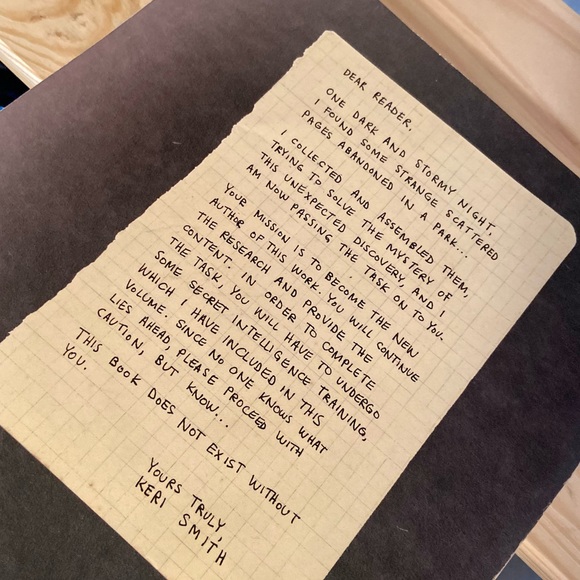 DEAR READER,
ONE DARK AND STORMY NIGHT,
I FOUND SOME STRANGE SCATTERED
PAGES ABANDONED IN A PARK...
I COLLECTED AND ASSEMBLED THEM,
TRYING TO SOLVE THE MYSTERY OF
THIS UNEXPECTED DISCOVERY, AND I
AM NOW PASSING THE TASK ON TO YOU.
YOUR MISSION IS TO BECOME THE NEW
AUTHOR OF THIS WORK. YOU WILL CONTINUE
THE RESEARCH AND PROVIDE THE
CONTENT. IN ORDER TO COMPLETE
THE TASK, YOU WILL HAVE TO UNDERGO
SOME SECRET INTELLIGENCE TRAINING,
WHICH I HAVE INCLUDED IN THIS
VOLUME. SINCE NO ONE KNOWS WHAT
LIES AHEAD, PLEASE PROCEED WITH
CAUTION, BUT KNOW...
THIS BOOK DOES NOT EXIST WITHOUT
YOU.
YOURS TRULY,
KERI SMITH